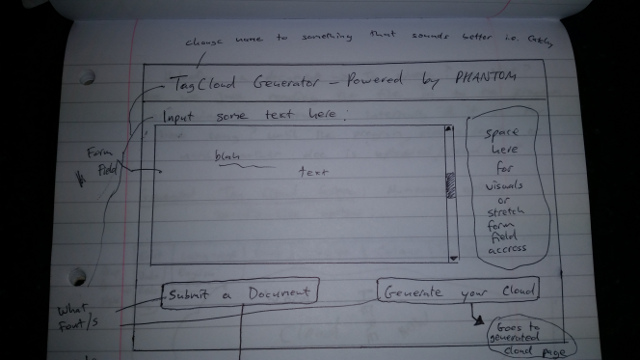 change name to something that sounds better i.e. Catchy
TagCloud Generator - Powered by PHANTOM
Input some text here:
Form
Field
blah
text
space
here
for
visuals
or
stretch
form
field
accross
Submit a Document
Generate your Cloud
What
Font/s
Goes to
generated
cloud page